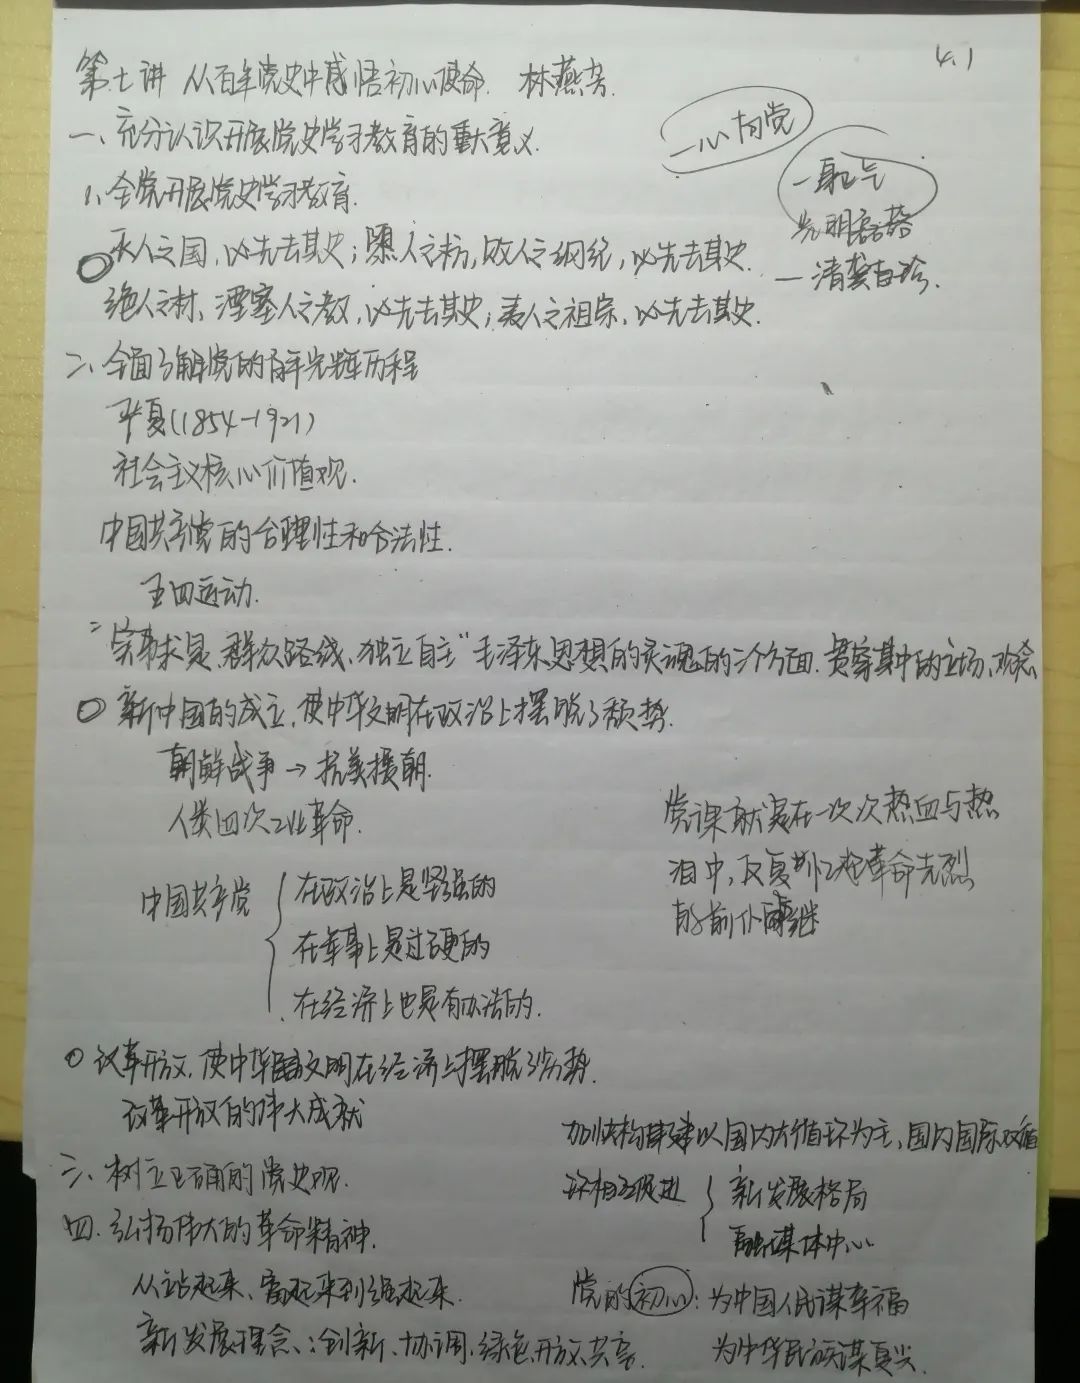 4.1
第七讲 从百年党史中感悟初心使命. 林燕芳.
一、充分认识开展党史学习教育的重大意义.
一心向党
1、全党开展党史学习教育.
一身正气
光明磊落
灭人之国,必先去其史;隳人之枋,败人之纲纪,必先去其史.
一清龚自珍.
绝人之材、湮塞人之教,必先去其史;夷人之祖宗,必先去其史.
二、全面了解党的百年光辉历程
严复(1854-1921)
社会主义核心价值观.
中国共产党的合理性和合法性.
五四运动.
"实事求是、群众路线、独立自主"毛泽东思想的灵魂的三个方面.贯穿其中的立场、观念
新中国的成立,使中华文明在政治上摆脱了颓势.
朝鲜战争→抗美援朝.
人类四次工业革命.
党课就是在一次次热血与热
泪中,反复忆起革命先烈
的前仆后继
中国共产党
在政治上是坚强的
在军事上是过硬的
在经济上也是有办法的.
改革开放,使中华文明在经济上摆脱了劣势.
改革开放的伟大成就
加快构建以国内大循环为主、国内国际双循
环相互促进
新发展格局
融媒体中心
三、树立正确的党史观.
四.弘扬伟大的革命精神.
从站起来、富起来到强起来.
党的初心:为中国人民谋幸福
为中华民族谋复兴.
新发展理念:创新、协调,绿色,开放,共享.